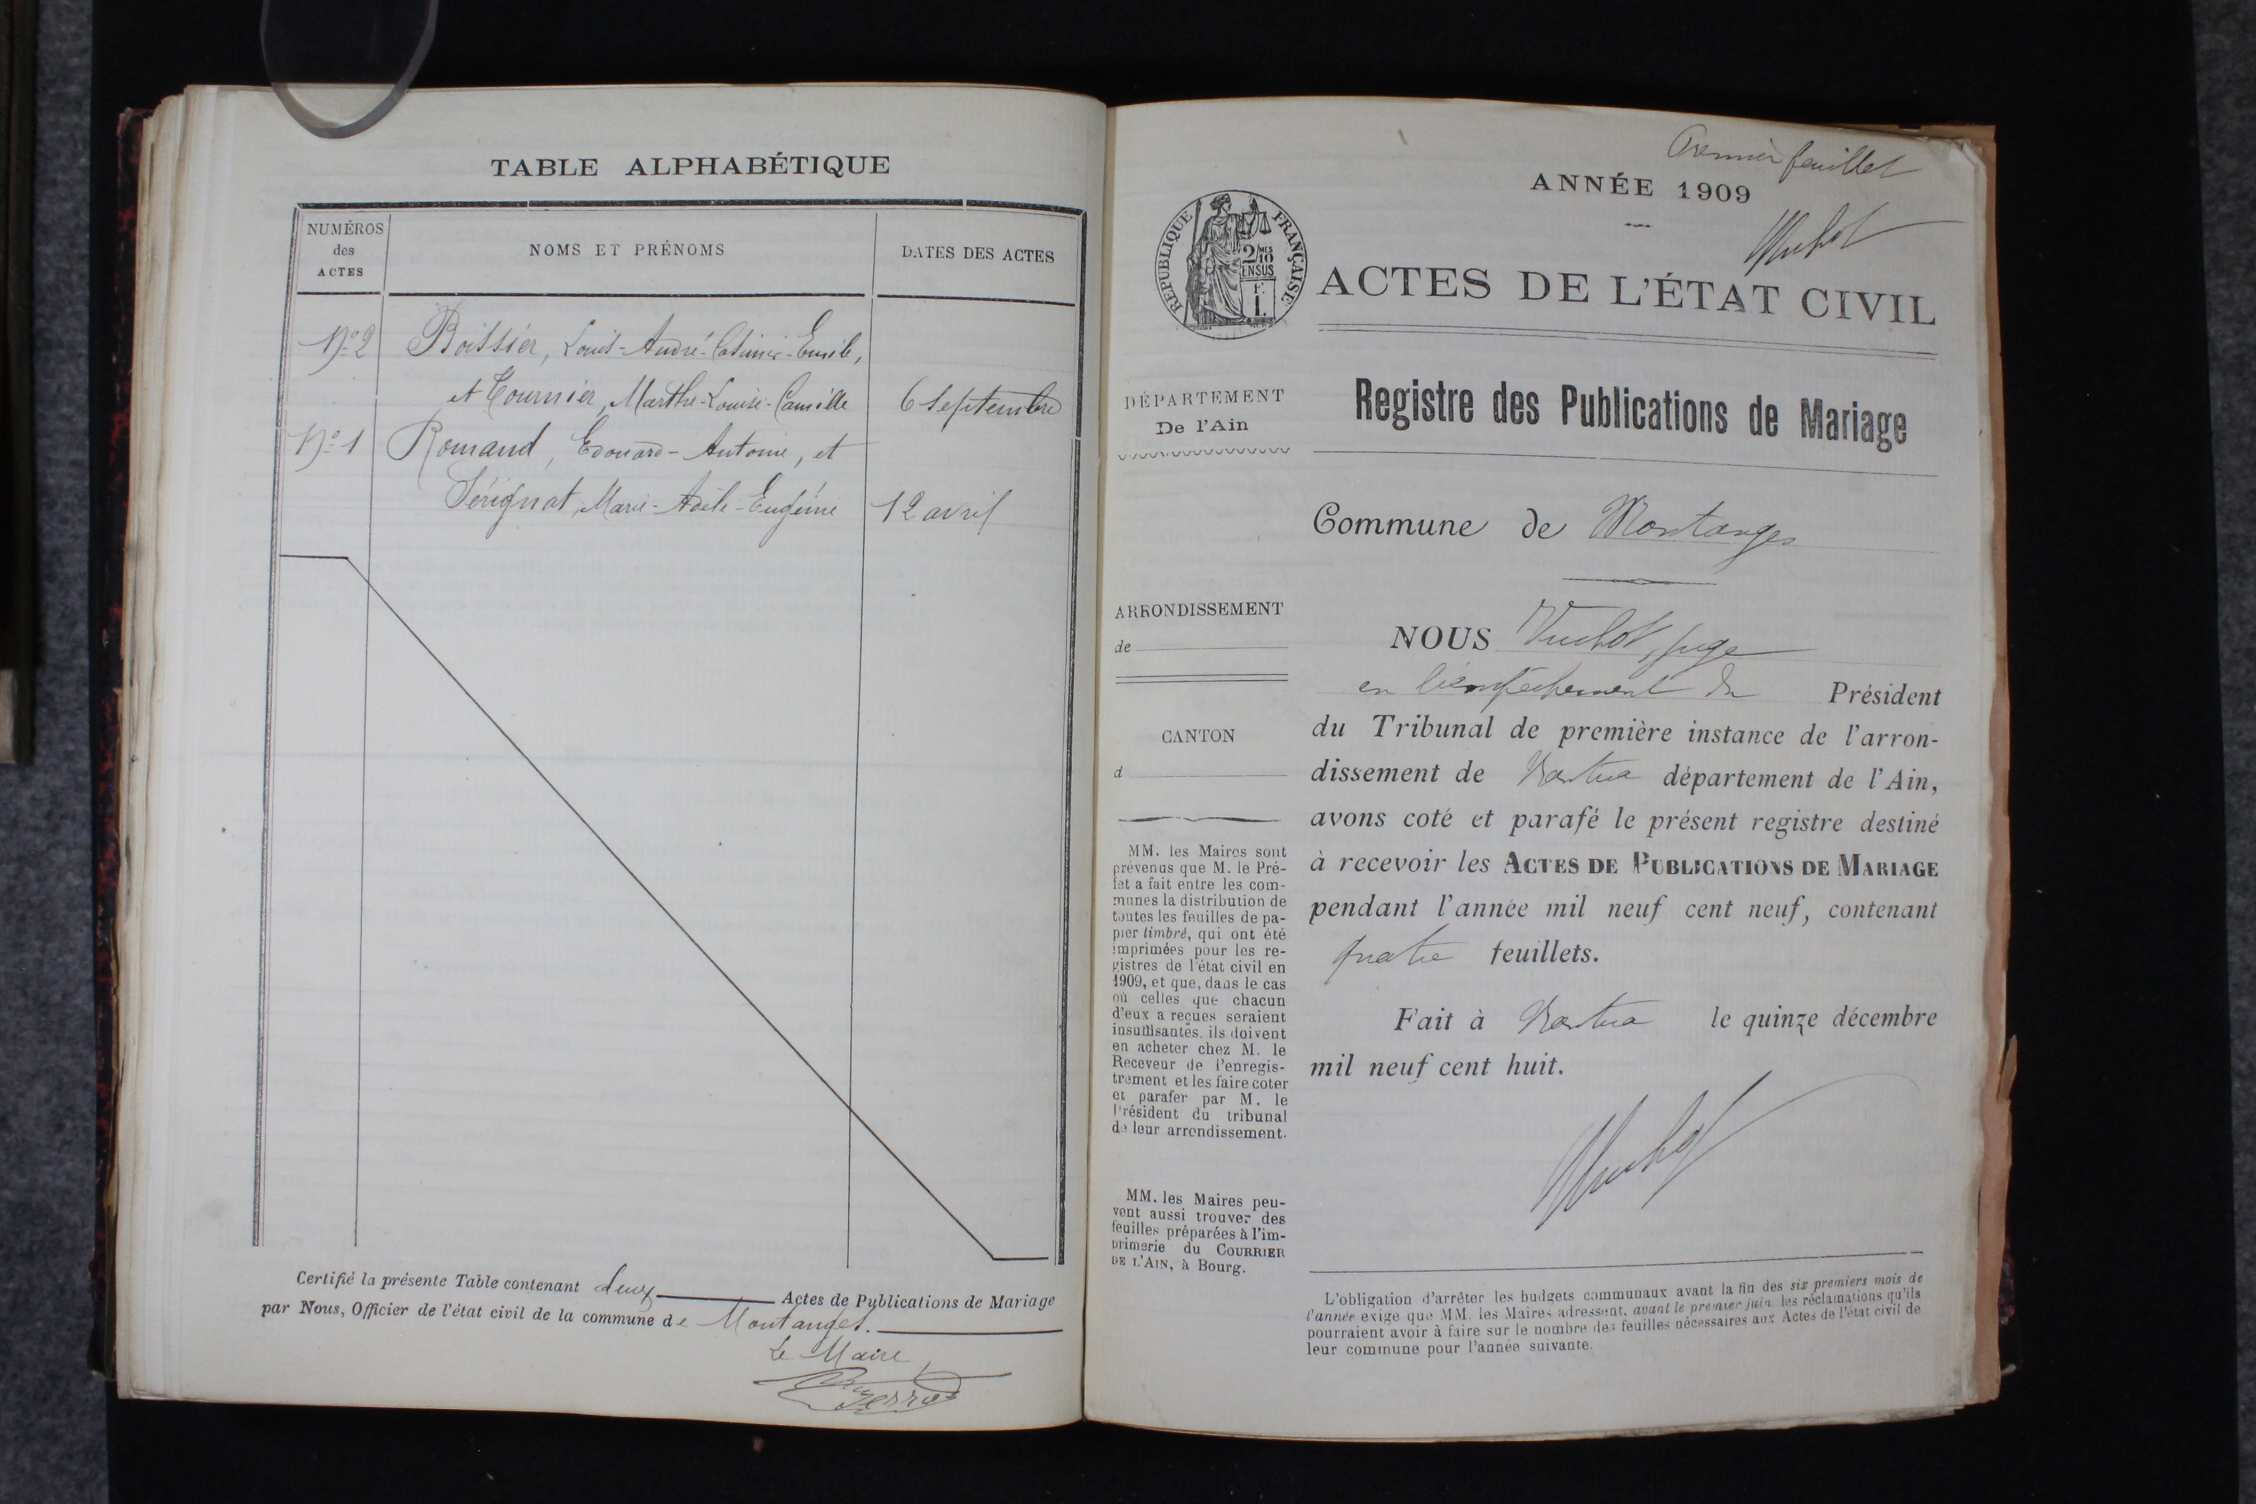 TABLE ALPHABÉTIQUE
NUMÉROS
des
ACTES
NOMS ET PRÉNOMS
DATES DES ACTES
No 2
Boissier, Louis-André-Casimir-Emile,
et Tournier, Marthe-Louise-Camille
6 Septembre
No 1
Romand, Edouard-Antoine, et
Sérignat, Marie-Adèle-Eugénie
12 avril
Certifié la présente Table contenant deux Actes de Publications de Mariage
par Nous, Officier de l'état civil de la commune de Montanges.
Le Maire,
Premier feuillet
ANNÉE 1909
RÉPUBLIQUE FRANÇAISE
2/10 MES
EN SUS
1 F.
ACTES DE L'ÉTAT CIVIL
DÉPARTEMENT
De l'Ain
ARRONDISSEMENT
de
CANTON
d
MM. les Maires sont
prévenus que M. le Pré-
fet a fait entre les com-
munes la distribution de
toutes les feuilles de pa-
pier timbré, qui ont été
imprimées pour les re-
gistres de l'état civil en
1909, et que, dans le cas
où celles que chacun
d'eux a reçues seraient
insuffisantes, ils doivent
en acheter chez M. le
Receveur de l'enregis-
trement et les faire coter
et parafer par M. le
Président du tribunal
de leur arrondissement.
MM. les Maires peu-
vent aussi trouver des
feuilles préparées à l'im-
primerie du COURRIER
DE L'AIN, à Bourg.
Registre des Publications de Mariage
Commune de Montanges
NOUS Vuchot, juge
en l'empêchement du Président
du Tribunal de première instance de l'arron-
dissement de Nantua département de l'Ain,
avons coté et parafé le présent registre destiné
à recevoir les ACTES DE PUBLICATIONS DE MARIAGE
pendant l'année mil neuf cent neuf, contenant
quatre feuillets.
Fait à Nantua le quinze décembre
mil neuf cent huit.
L'obligation d'arrêter les budgets communaux avant la fin des six premiers mois de
l'année exige que MM. les Maires adressent, avant le premier juin, les réclamations qu'ils
pourraient avoir à faire sur le nombre des feuilles nécessaires aux Actes de l'état civil de
leur commune pour l'année suivante.